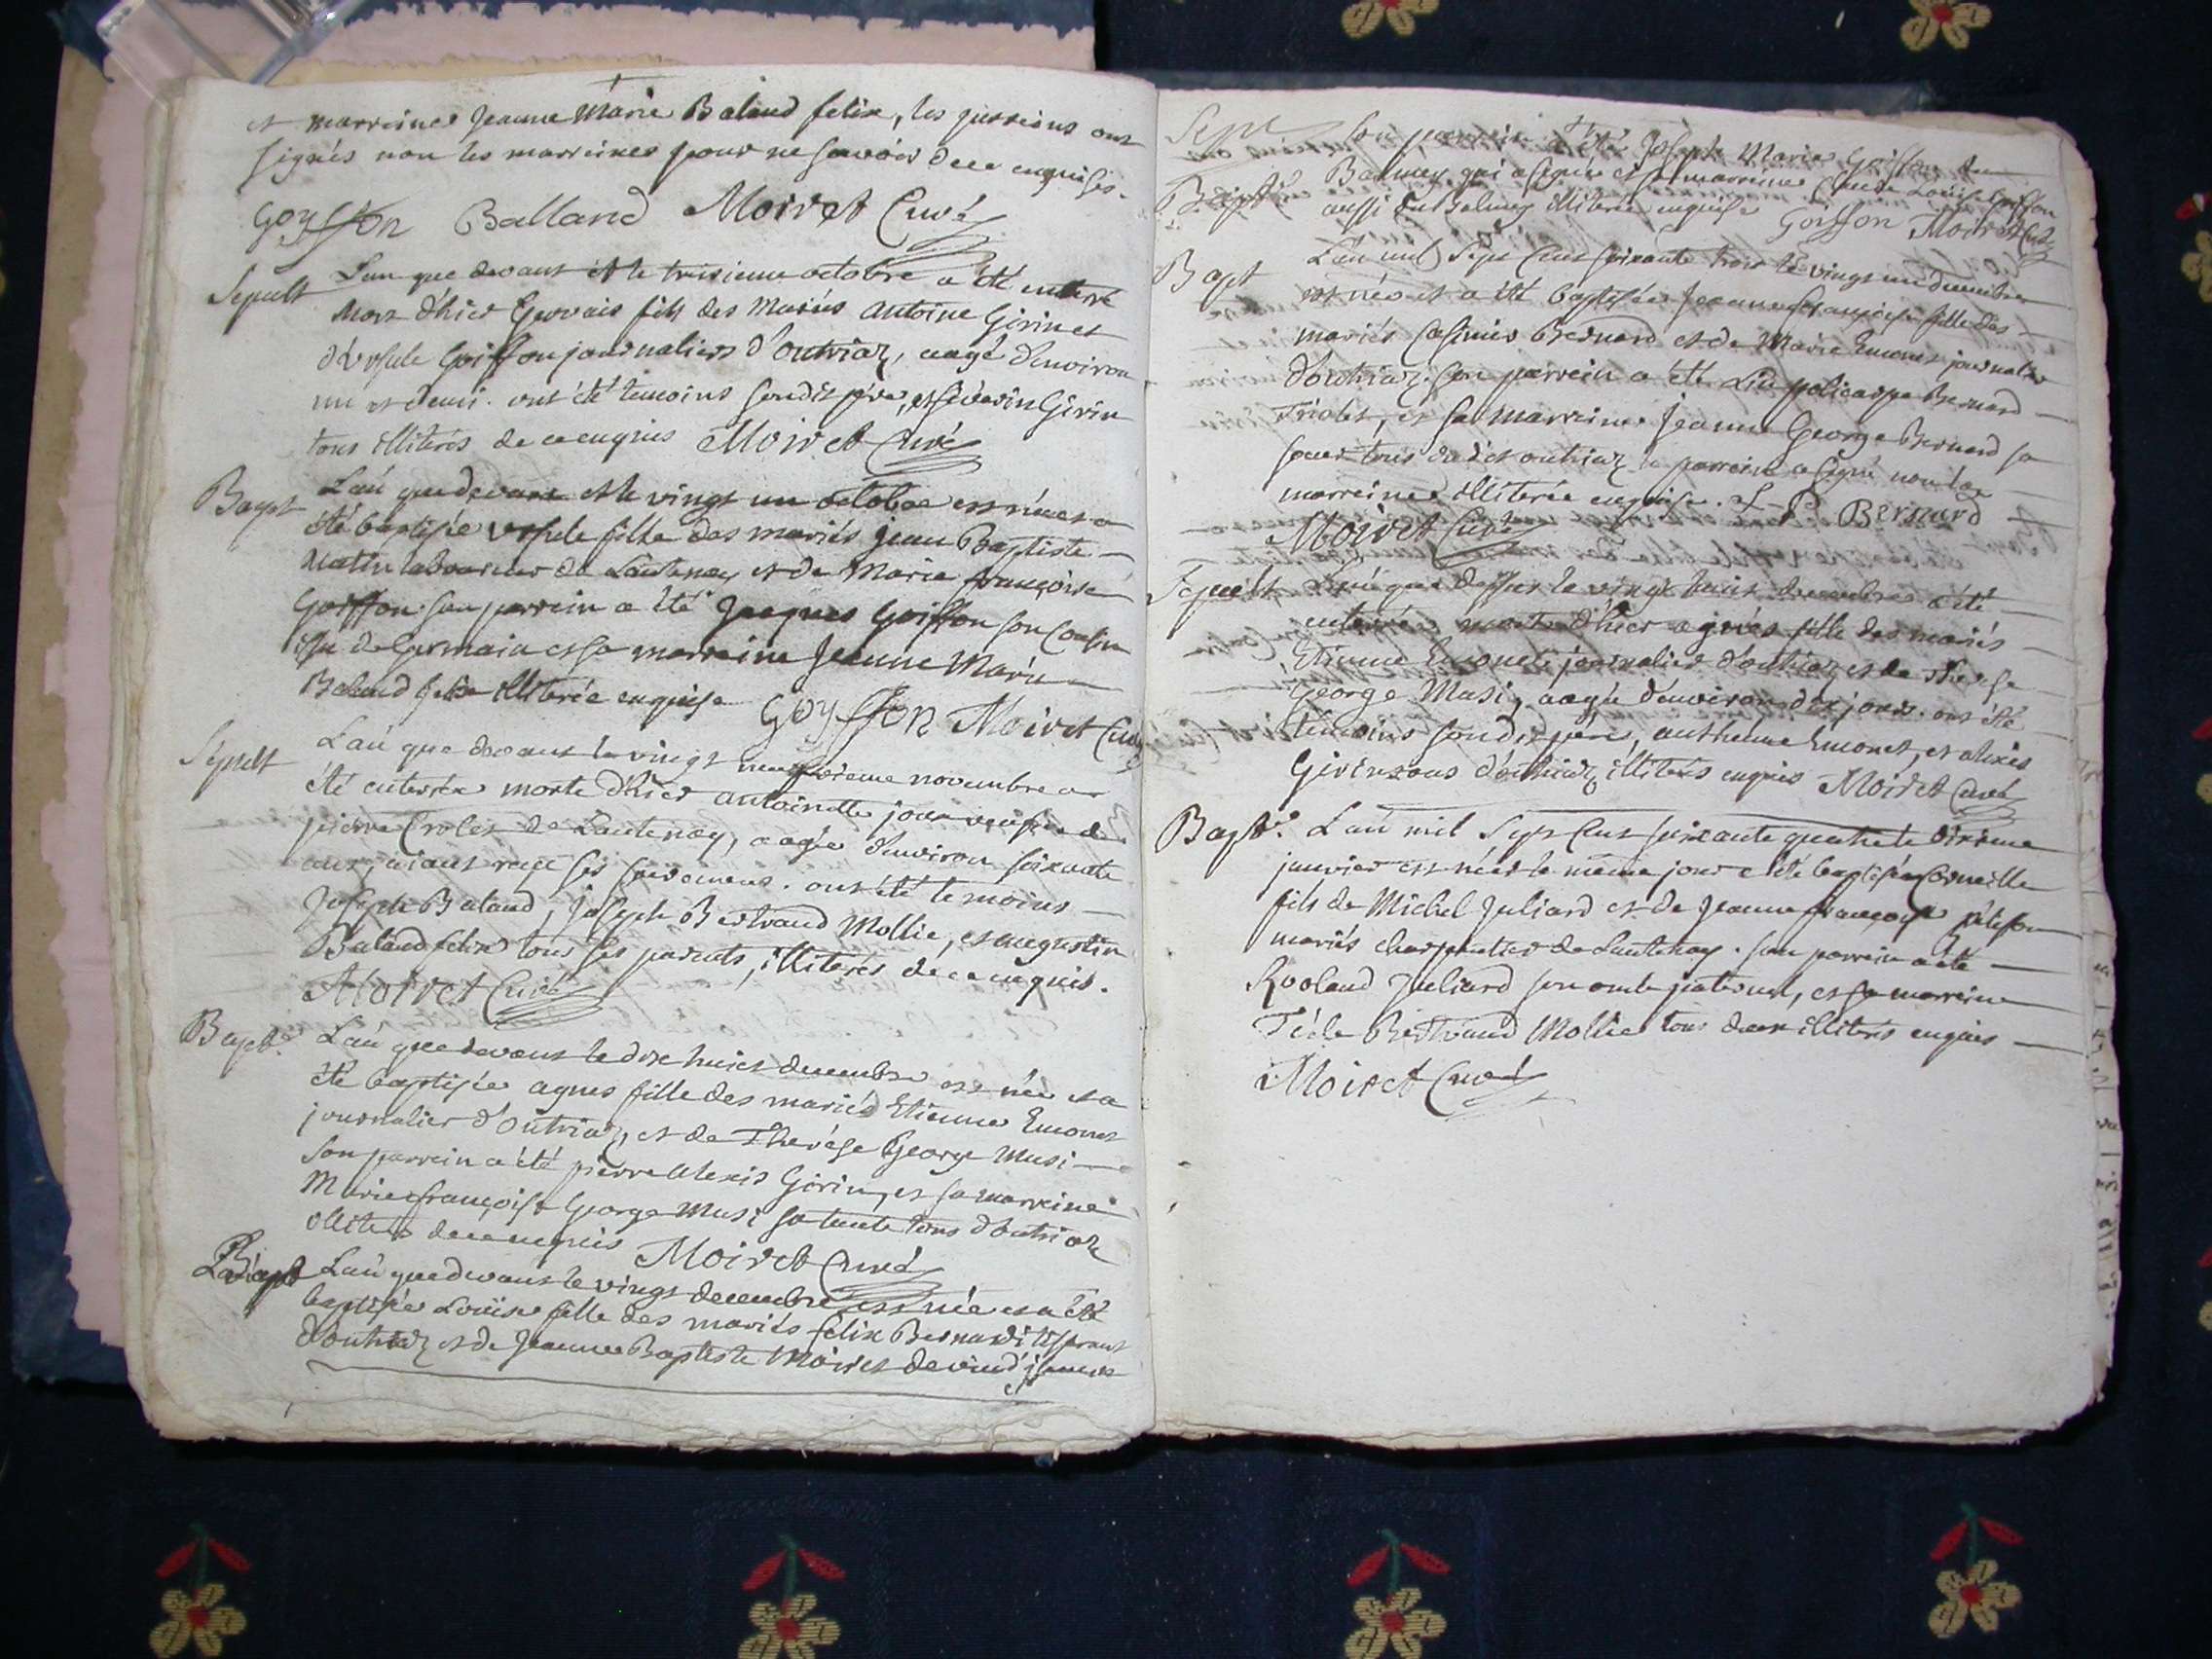 et marreines Jeanne Marie Baland felix, les parreins ont
signés non les marreines pour ne savoir de ce enquises.
Goyffon Balland Moiret Curé
Sepult L'an que devant et le troisieme octobre a été enterré
mort d'hier Gervais fils des mariés antoine Girin et
d'Ursule Goiffon journaliers d'outriaz, aagé d'environ
un et demi. ont été temoins sondit père, et séverin Girin
tous illiterés de ce enquis Moiret Curé
Bapt L'an que devant et le vingt un octobre est née et a
été baptisée ursule fille des mariés jean Baptiste
laboureur de Lantenay et de Marie françoise
Goiffon. son parrein a été Jacques Goiffon son cousin
issu de Germain et sa marreine Jeanne Marie
Baland felix illiterée enquise Goyffon Moiret Curé
Sépult L'an que devant le vingt neuvieme novembre a
été enterrée morte d'hier antoinette veuve de
pierre de Lantenay, aagée d'environ soixante
ans, aiant reçu ses sacremens. ont été temoins
Joseph Baland, Joseph Bertrand Mollie, et augustin
Baland felix tous ses parents, illiterés de ce enquis.
Moiret Curé
Bapt.e L'an que devant le dix huict decembre est née et a
été baptisée agnes fille des mariés Etienne Emonet
journalier d'outriaz, et de Therése George Musi
Son parrein a été pierre alexis Girin, et sa marreine
Marie françoise George Musi sa tante tous d'outriaz
illiterés de ce enquis Moiret Curé
Bapt L'an que devant le vingt decembre est née et a été
baptisée Louise fille des mariés felix Bernard
d'outriaz et de Jeanne Baptiste Moiret de
Sept son parrein a été Joseph Marie Goiffon du
Bapt.e Balmey qui a signé et sa marreine Louise Goiffon
aussi du Balmey illiterée enquise Goiffon Moiret Curé
Bapt L'an mil Sept Cent soixante trois le vingt un decembre
est née et a été baptisée Jeanne françoise fille des
mariés Casimir Bernard et de Marie Emonet journalier
d'outriaz. son parrein a été policarpe Bernard
et sa marreine Jeanne George Bernard sa
soeur tous du dit outriaz le parrein a signé non la
marreine illiterée enquise. L. P. Bernard
Moiret Curé
Sepult L'an que dessus le vingt huict decembre a été
enterrée morte d'hier agnés fille des mariés
Etienne Emonet journalier d'outriaz et de Therese
George Musi, aagée d'environ dix jours. ont été
temoins sondit père, antheme Emonet, et alexis
Girin tous d'outriaz illiterés enquis Moiret Curé
Bapt.e L'an mil Sept Cent soixante quatre le dixieme
janvier est né et le même jour a été baptisé Corneille
fils de Michel Juliard et de Jeanne françoise
mariés charpentier de Lantenay. son parrein a été
Rooland Juliard son oncle paternel, et sa marreine
Técle Bertrand Mollie tous deux illiterés enquis
Moiret Curé